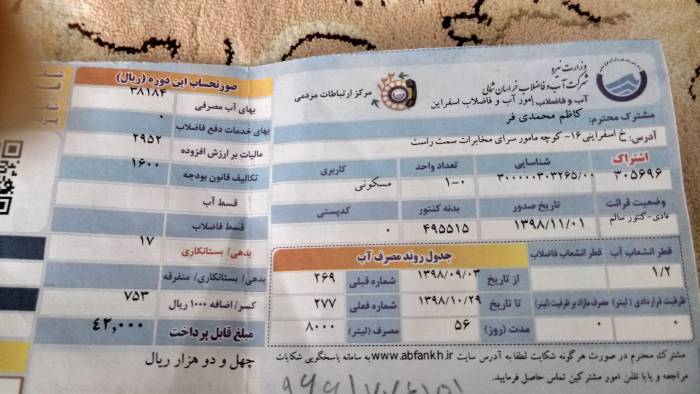 وزارت نیرو
شرکت آب و فاضلاب خراسان شمالی
آب و فاضلاب: امور آب و فاضلاب اسفراین
مرکز ارتباطات مردمی
مشترک محترم: کاظم محمدی فر
آدرس: خ اسفراینی ۱۶- کوچه مامور سرای مخابرات سمت راست
اشتراک شناسایی تعداد واحد کاربری
۳۰۵۶۹۶ ۳۰۰۰۰۰۰۳۰۳۲۶۵/۰۰ ۱-۰ مسکونی
وضعیت قرائت تاریخ صدور بدنه کنتور کدپستی
عادی-کنتور سالم ۱۳۹۸/۱۱/۰۱ ۴۹۵۵۱۵ ۰
قطر انشعاب آب قطر انشعاب فاضلاب
۱/۲
ظرفیت قراردادی (لیتر) مصرف مازاد بر ظرفیت (لیتر)
۰ ۰
جدول روند مصرف آب
از تاریخ ۱۳۹۸/۰۹/۰۳ شماره قبلی ۲۶۹
تا تاریخ ۱۳۹۸/۱۰/۲۹ شماره فعلی ۲۷۷
مدت (روز) ۵۶ مصرف (لیتر) ۸۰۰۰
مشترک محترم در صورت هرگونه شکایت لطفا به آدرس سایت www.abfankh.ir به سامانه پاسخگویی شکایات
مراجعه و یا با تلفن امور مشترکین تماس حاصل فرمایید.
صورتحساب این دوره (ریال)
بهای آب مصرفی ۳۸۱۸۴
بهای خدمات دفع فاضلاب ۰
مالیات بر ارزش افزوده ۲۹۵۲
تکالیف قانون بودجه ۱۶۰۰
قسط آب
قسط فاضلاب
بدهی/ بستانکاری ۱۷
بدهی/ بستانکاری/ متفرقه
کسر/ اضافه ۱۰۰۰ ریال ۷۵۳
مبلغ قابل پرداخت ۴۲,۰۰۰
چهل و دو هزار ریال